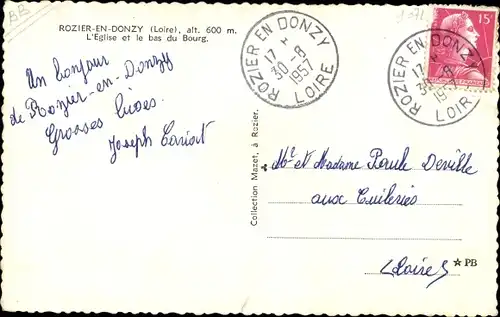 ROZIER-EN-DONZY (Loire), alt. 600 m.
L'Eglise et le bas du Bourg.
Un bonjour
de Rozier-en-Donzy
Grosses bises.
Joseph
ROZIER EN DONZY
17 H
30-8
1957
LOIRE
ROZIER EN DONZY
17 H
30-8
1957
LOIRE
15F
Collection Mazet, à Rozier.
Mr et Madame Paule Deville
aux Tuileries
(Loire)
★ PB